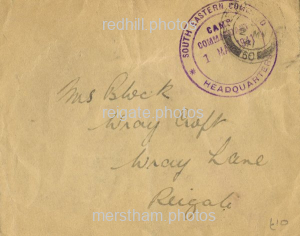 redhill photos
SOUTH EASTERN COMMAND
CAMP
COMMA
1 MA
HEADQUARTERS
Ms Block
Wray Croft
reigate photos
Wray Lane
Reigate
merstham photos
£10